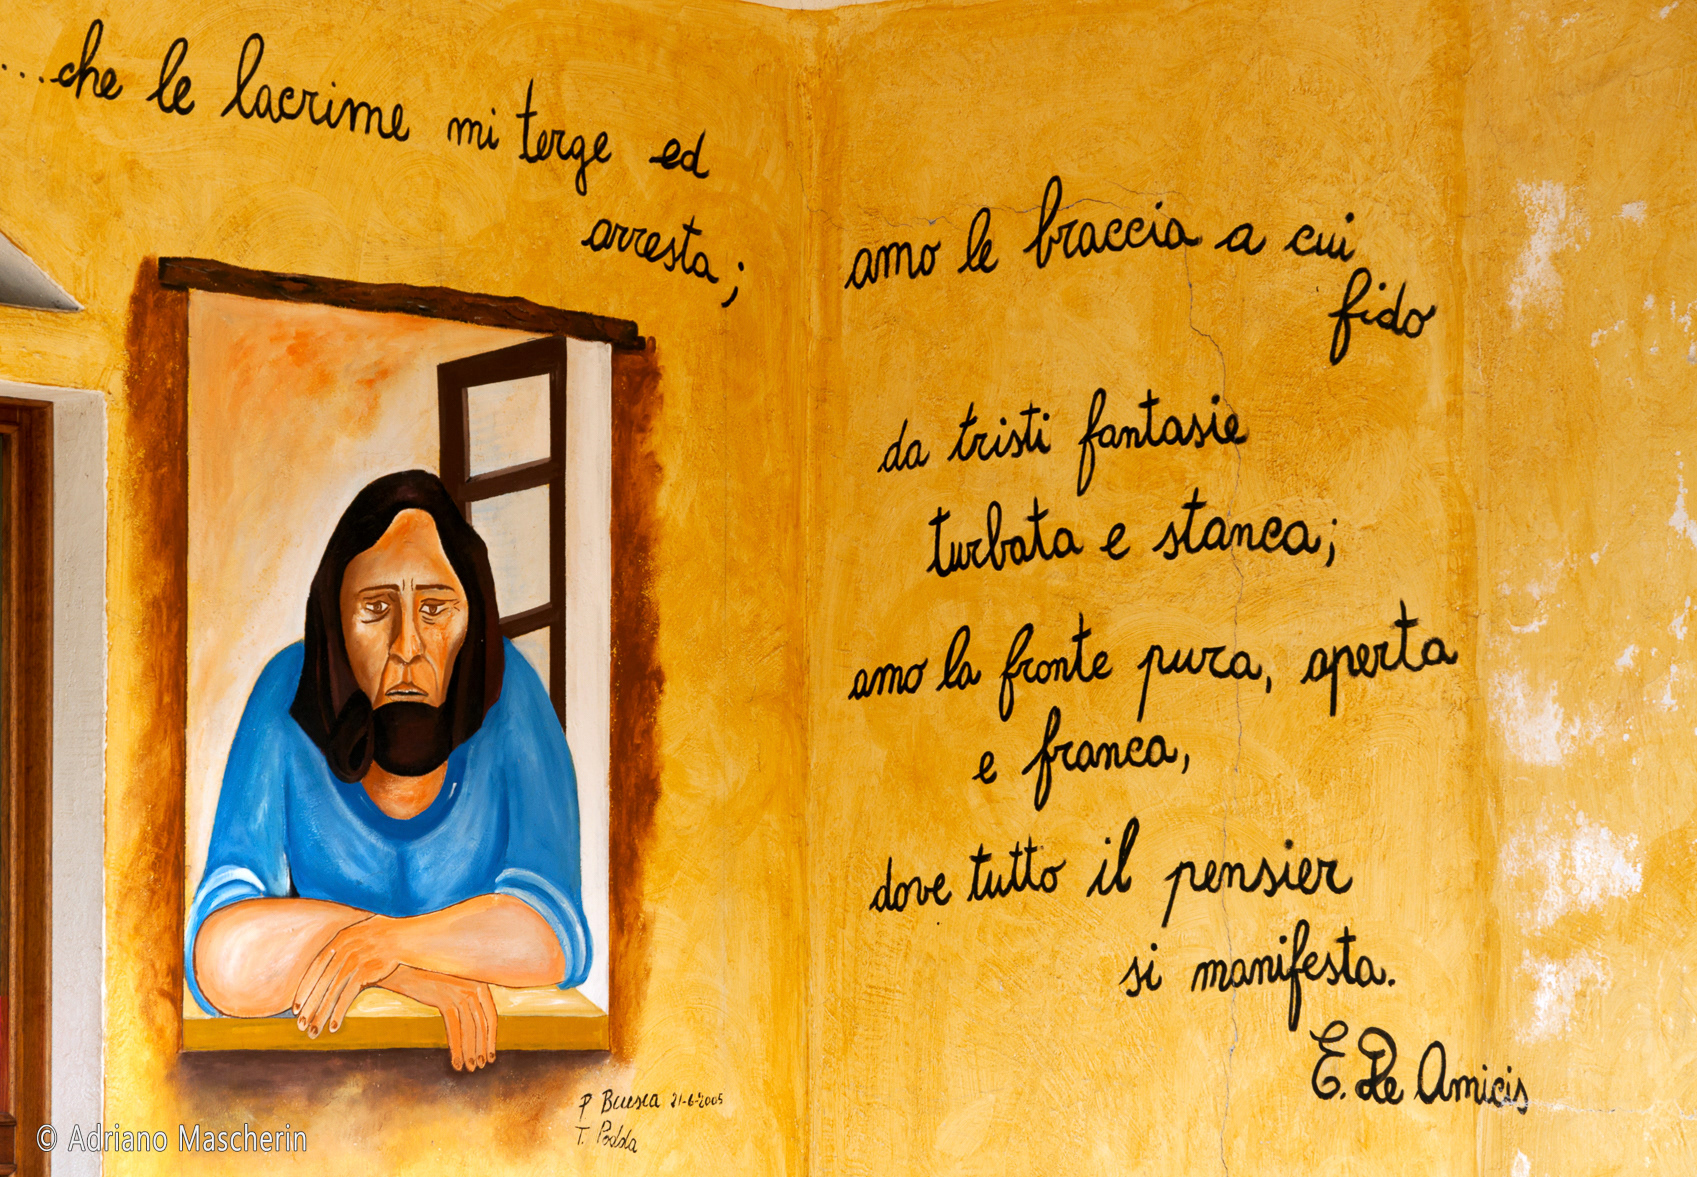 ...che le lacrime mi terge ed
arresta;
amo le braccia a cui
fido
da tristi fantasie
turbata e stanca;
amo la fronte pura, aperta
e franca,
dove tutto il pensier
si manifesta.
E. De Amicis
P Buesca 21-6-2005
T. Podda
© Adriano Mascherin